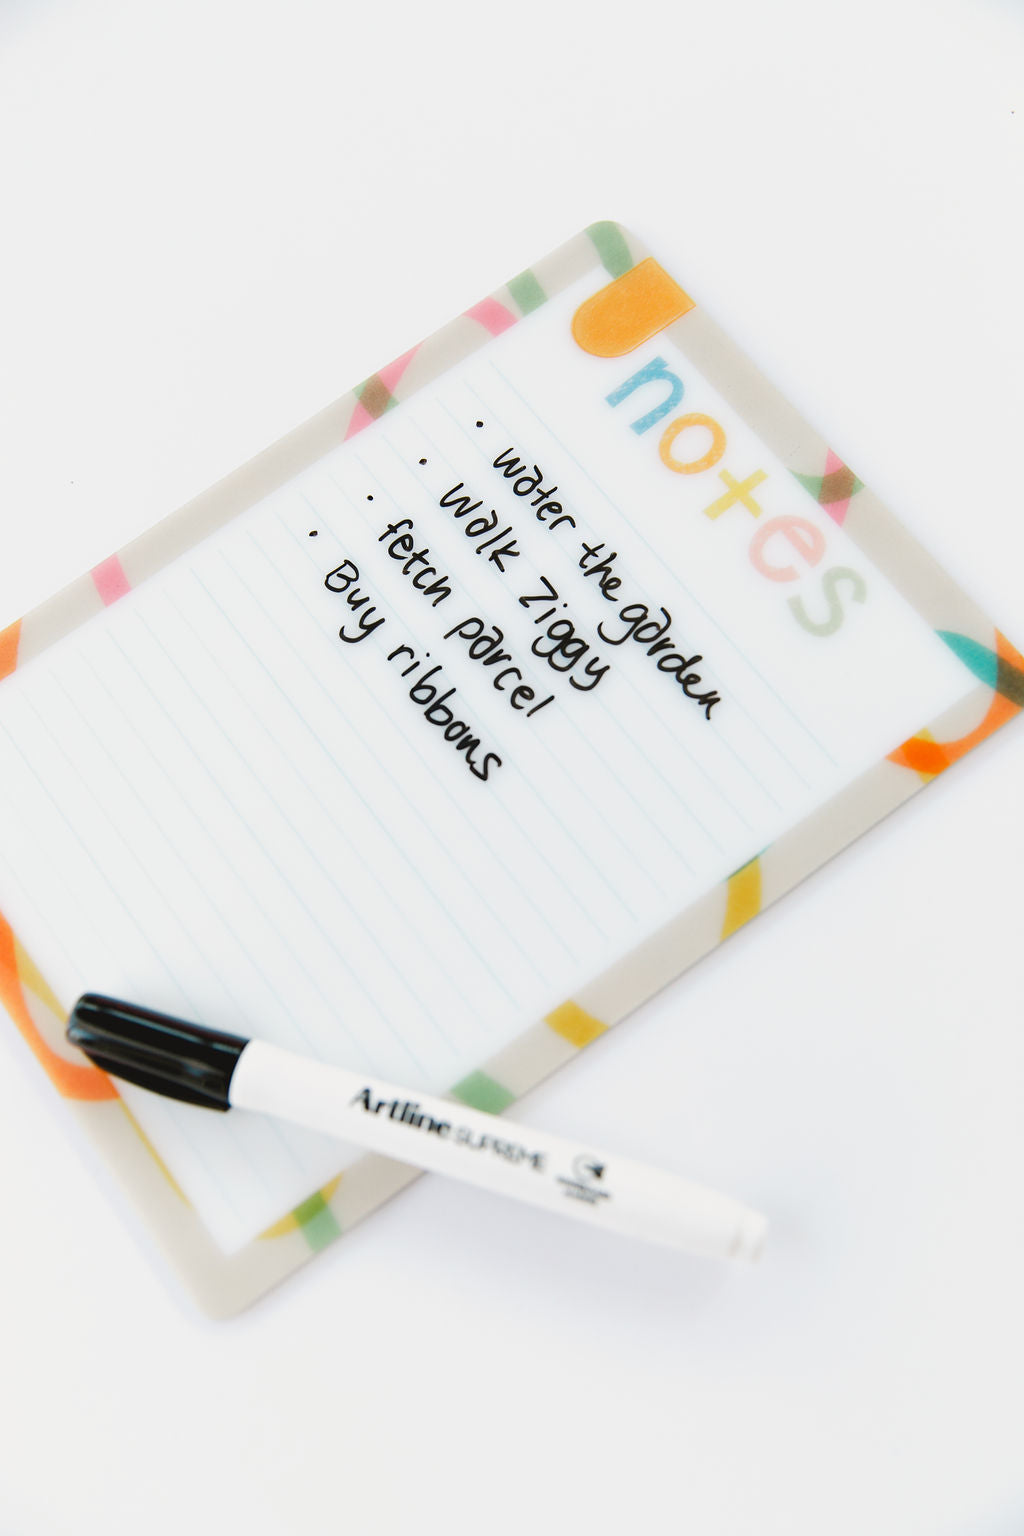 notes
• water the garden
• walk Ziggy
• fetch parcel
• Buy ribbons
Artline SUPREME